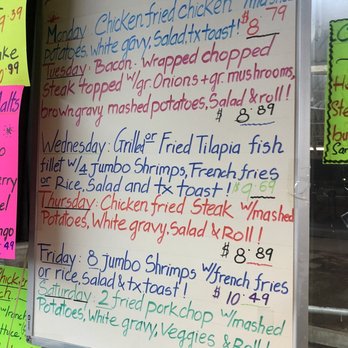 Monday: Chicken fried chicken
potatoes, white gravy, Salad, tx toast! $8.79
Tuesday: Bacon-wrapped chopped
Steak topped w/gr. Onions + gr. mushrooms,
brown gravy mashed potatoes, Salad & roll!
$8.89
Wednesday: Grilled or Fried Tilapia fish
fillet w/4 Jumbo Shrimps, French fries
or Rice, Salad and tx toast! $9.69
Thursday: Chicken fried Steak w/mashed
Potatoes, White Gravy, Salad & Roll!
$8.89
Friday: 8 jumbo Shrimps w/french fries
or rice, Salad & tx toast! $10.49
Saturday: 2 fried porkchop w/mashed
Potatoes, white gravy, Veggies & Roll!